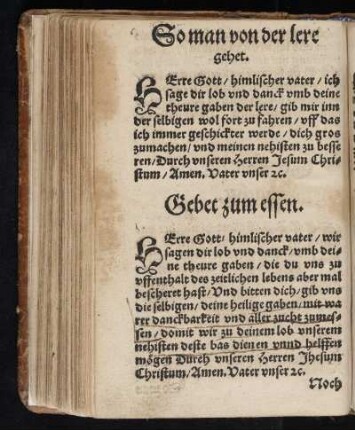 So man von der lere
gehet.
HErre Gott / himlischer vater / ich
sage dir lob vnd danck vmb deine
theure gaben der lere / gib mir inn
der selbigen wol fort zu fahren / vff das
ich immer geschickter werde / dich gros
zumachen / vnd meinen nehisten zu besse
ren / Durch vnseren Herren Jesum Chri-
stum / Amen. Vater vnser ꝛc.
Gebet zum essen.
HErre Gott / himlischer vater / wir
sagen dir lob vnd danck / vmb dei-
ne theure gaben / die du vns zu
vffenthalt des zeitlichen lebens aber mal
bescheret hast / Vnd bitten dich / gib vns
die selbigen / deine heilige gaben / mit wa
rer danckbarkeit vnd aller zucht zunies-
sen / domit wir zu deinem lob vnserem
nehisten deste bas dienen vnnd helffen
mögen Durch vnseren Herren Jhesum
Christum / Amen. Vater vnser ꝛc.
Noch